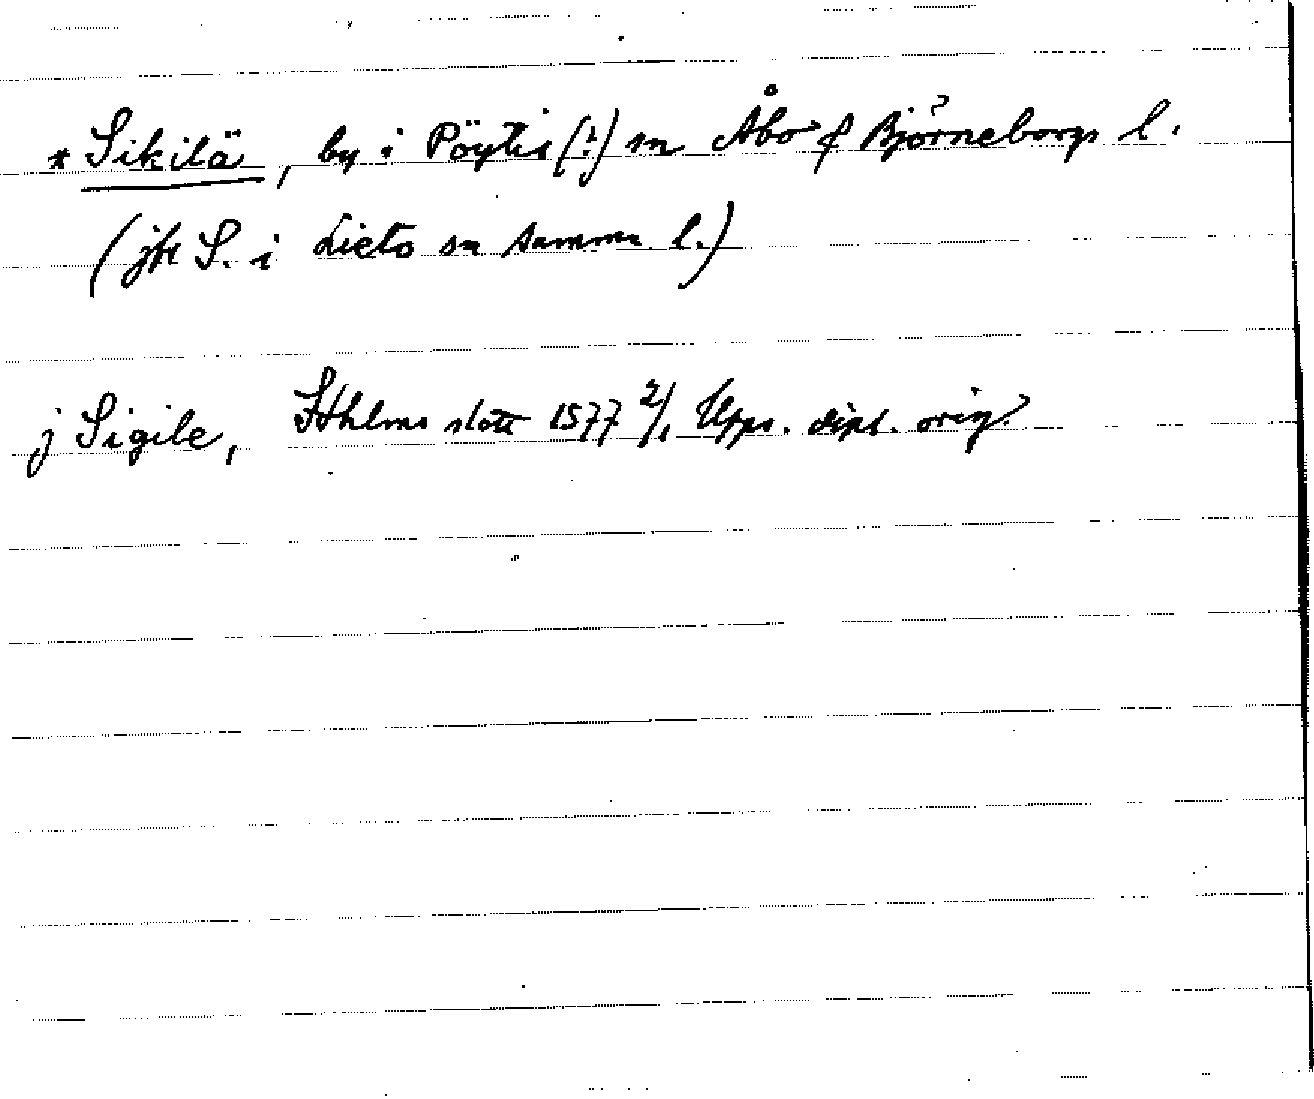 * Sikilä, by i Pöytis (?) sn Åbo & Björneborgs l.
(jfr S. i Lieto sn samma l.)
j Sigile, Sthlms slott 1577 2/1 Upps. dipl. orig.